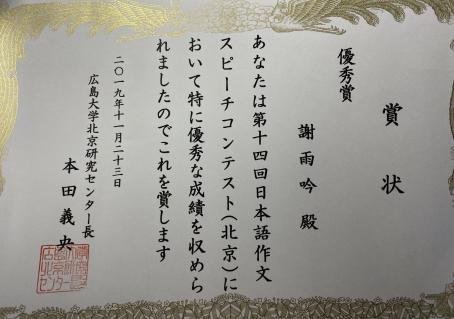 賞状
優秀賞
謝雨吟殿
あなたは第十四回日本語作文
スピーチコンテスト(北京)に
おいて特に優秀な成績を収めら
れましたのでこれを賞します
二〇一九年十一月二十三日
広島大学北京研究センター長
本田義央